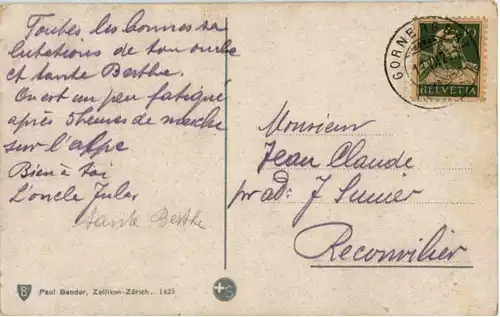 Toutes les bonnes sa
lutations de ton oncle
et tante Berthe.
On est un peu fatigué
après 5 heures de marche
sur l'alpe
Bien à toi
L'oncle Jules
tante Berthe
Monsieur
Jean Claude
p. ad: J Sunier
Reconvilier
GORNE
10
HELVETIA
B
Paul Bender, Zollikon-Zürich.. 1425
S